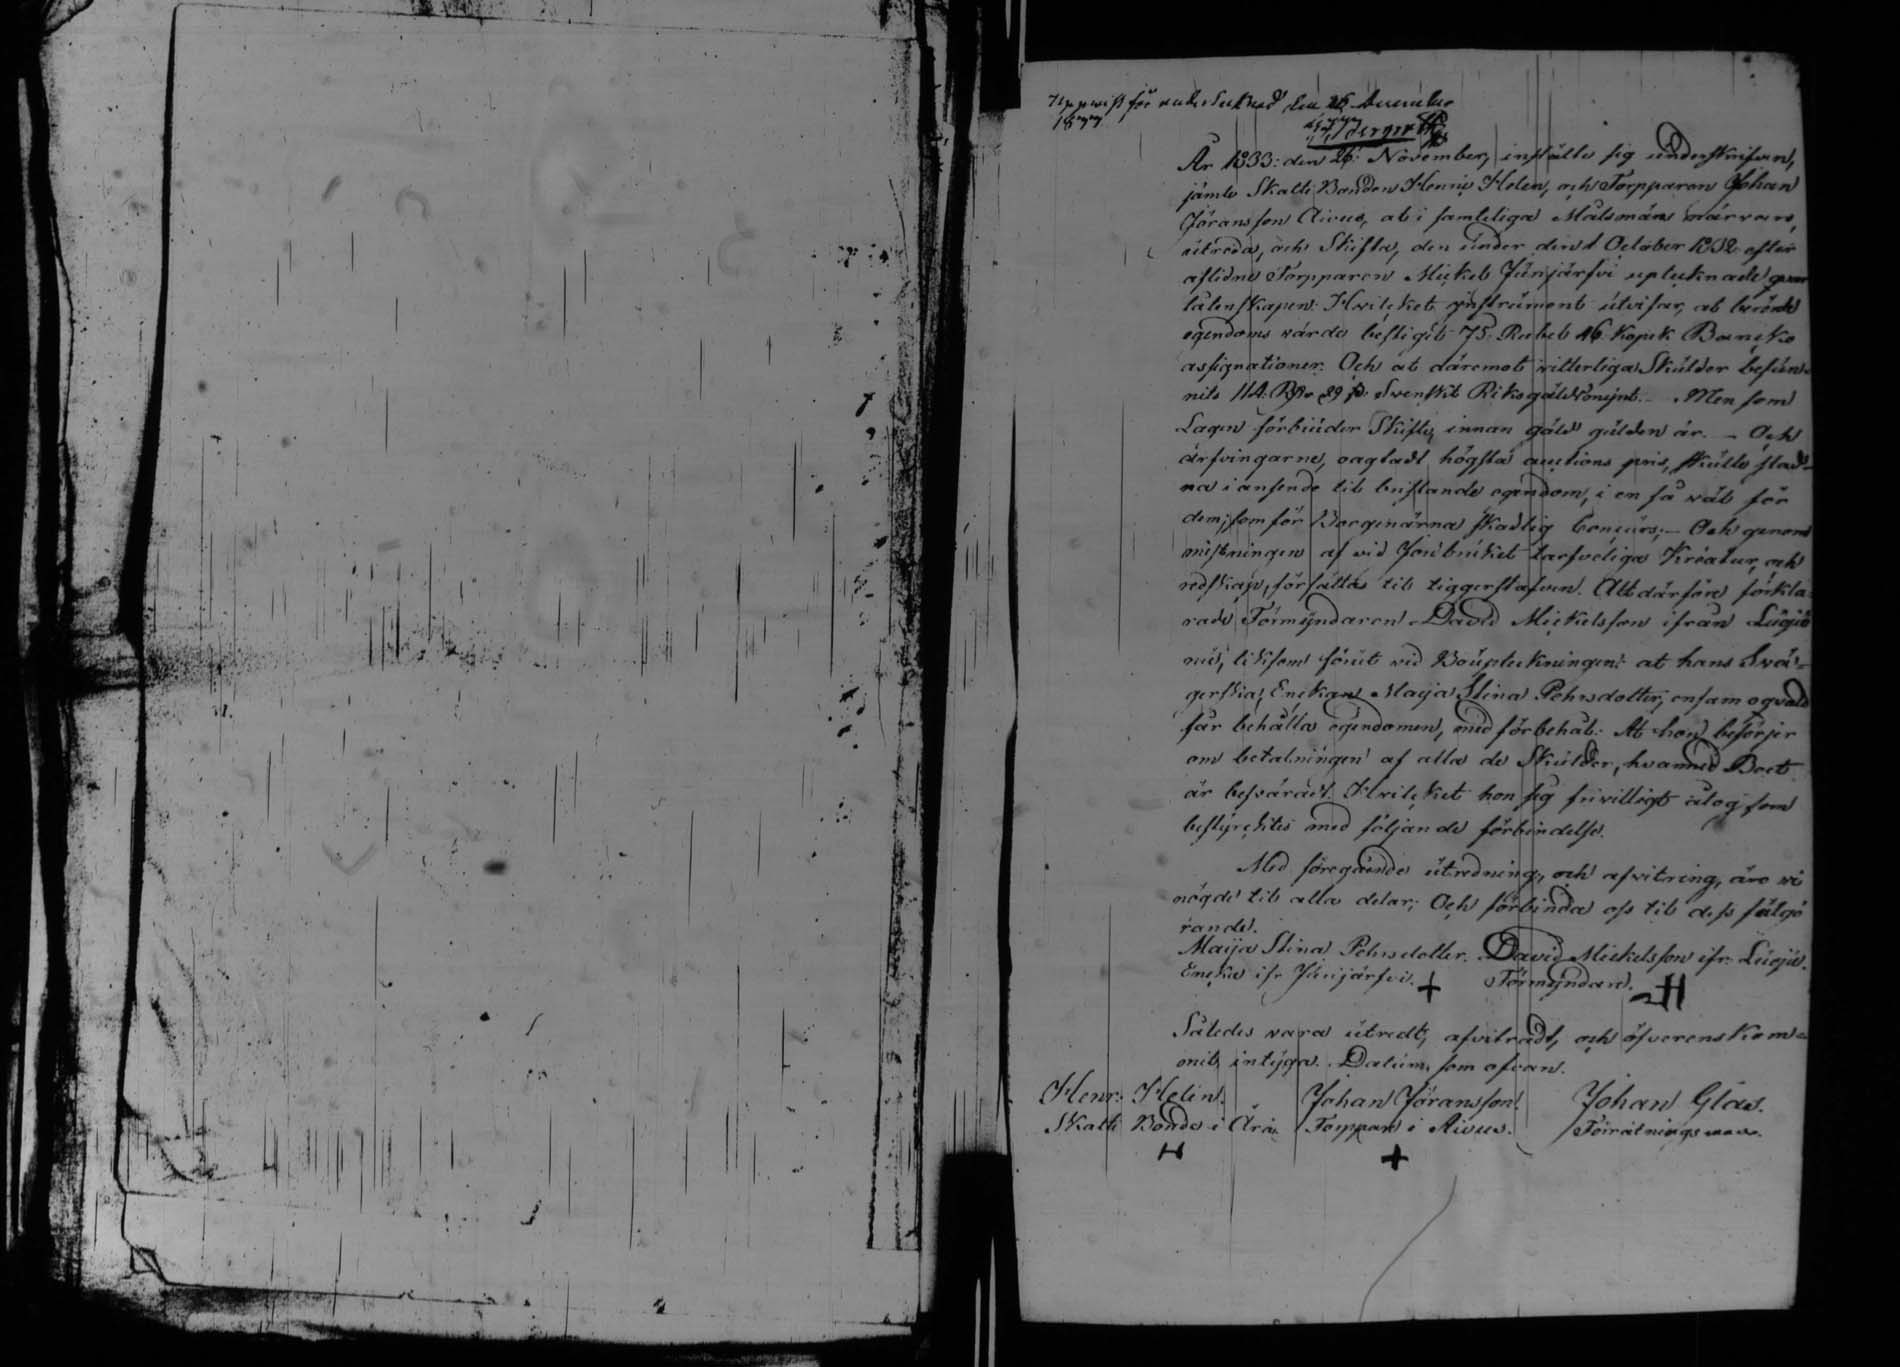 Uppvist för undertecknad den 26 December
1833
År 1833: den 26: November, instälte sig underskrifven,
jämte Skatte Bonden Henric Helen, och Torpparen Johan
Jöransson Aivus, at i samteliga Målsmäns närvaro,
utreda, och Skifta, den under den 1 October 1832 efter
aflidne Torpparen Mickel Jänijärfvi upteknade qvar
låtenskapen. Hvilcket instrument utvisar, at berörde
egendoms värde bestigit 75. Rubel 46 Kopek Bancko
assignationer. Och at däremot vitterliga Skulder befun-
nits 114. Rdr 29 s. Svenskt Riksgäld mynt. - Men som
Lagen förbiuder Skifte, innan gäld gulden är. - Och
ärfvingarne, oagtadt högsta auctions pris, skulle stad-
na i ansende til bristande egendom, i en så väl för
dem, som för Borgenärna skadlig Concurs; - Och genom
mistningen af vid Jordbruket tarfveliga Kreatur, och
redskap, försättas til tiggerstafven. Alt därföre förkla-
rade Förmyndaren David Mickelsson ifrån Luojä
nu, liksom förut vid Boupteckningen: at hans Svä-
gerska, Enckan Maija Stina Pehrsdotter, ensam oqvald
får behålla egendomen, med förbehåll: At hon besörjer
om betalningen af alla de Skulder, hvarmed Boet
är besväradt. Hvilcket hon sig frivilligt åtog som
bestyrcktes med följande förbindelse.
Med föregående utredning, och afvitring, äro vi
nögde til alla delar; Och förbinda oss til dess fulgö
rande.
Maija Stina Pehrsdotter. David Mickelsson ifr: Luojä.
Encka ifr Jänijärfvi. + Förmyndare.
Således vara utredt, afvitradt, och öfverenskom-
mit, intyga. Datum som ofvan.
Henr: Helin. Johan Jöransson. Johan Glas.
Skatte Bonde i Ara. Torppare i Aivus. Förrätningsman.
H +